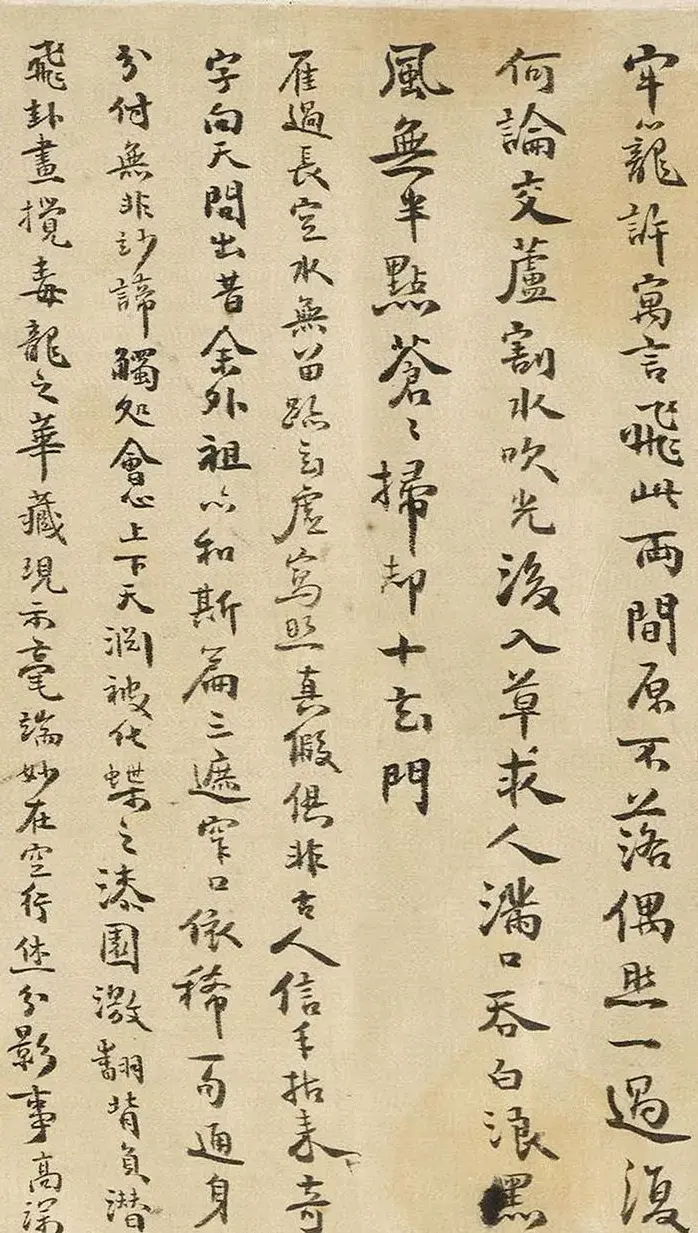 牢籠許寓言飛此兩間原不落偶然一過復
何論交蘆割水吹光後入草求人滿口吞白浪黑
風無半點蒼〻掃却十玄門
雁過長空水無留跡玄虛寫照真假俱非古人信手拈來奇
字向天問出昔余外祖以和斯篇三遮窄口依稀一句通身
分付無非妙諦觸処會心上下天淵被化蝶之漆園激翻背負潛
飛卦畫攪毒龍之華藏現示毫端妙在空行迹分影事高深